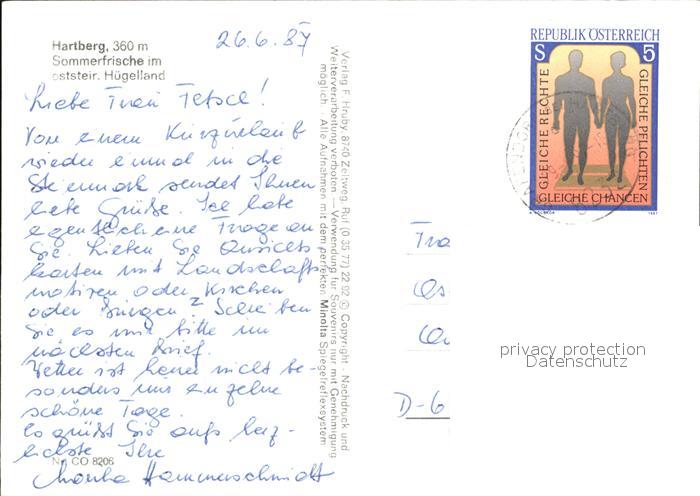 Hartberg, 360 m
Sommerfrische im
oststeir. Hügelland
26.6.87
Liebe Frau Fetsch!
Von einem Kurzurlaub
wieder einmal in die
Steiermark sendet Ihnen
liebe Grüße. Ich habe
eigentlich eine Frage an
Sie. Lieben Sie Ansichts
karten mit Landschafts
motiven oder Kirchen
oder Burgen? Schreiben
Sie es mir bitte im
nächsten Brief.
Wetter ist heuer nicht be-
sonders nur einzelne
schöne Tage.
Es grüßt Sie aufs herz-
lichste Ihre
Hammerschmidt
Nr. CO 8206
Verlag F. Hruby, 8740 Zeltweg, Ruf (0 35 77) 22 92 © Copyright · Nachdruck und
Weiterverarbeitung verboten — Verwendung für Souvenirs nur mit Genehmigung
möglich · Alle Aufnahmen mit dem perfekten Minolta Spiegelreflexsystem
REPUBLIK ÖSTERREICH
S 5
GLEICHE RECHTE
GLEICHE PFLICHTEN
GLEICHE CHANCEN
1987
Fra
D-6
privacy protection
Datenschutz